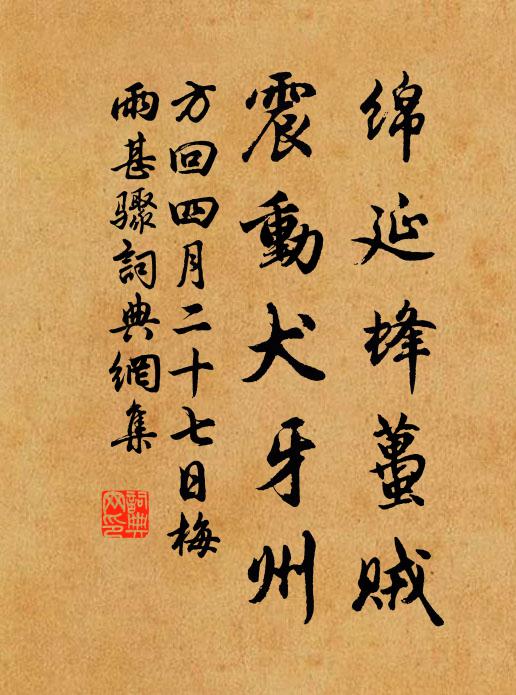 绵延蜂蠆贼
震動犬牙州
方回四月二十七日梅
雨甚驟詞典網集
詞典
网印